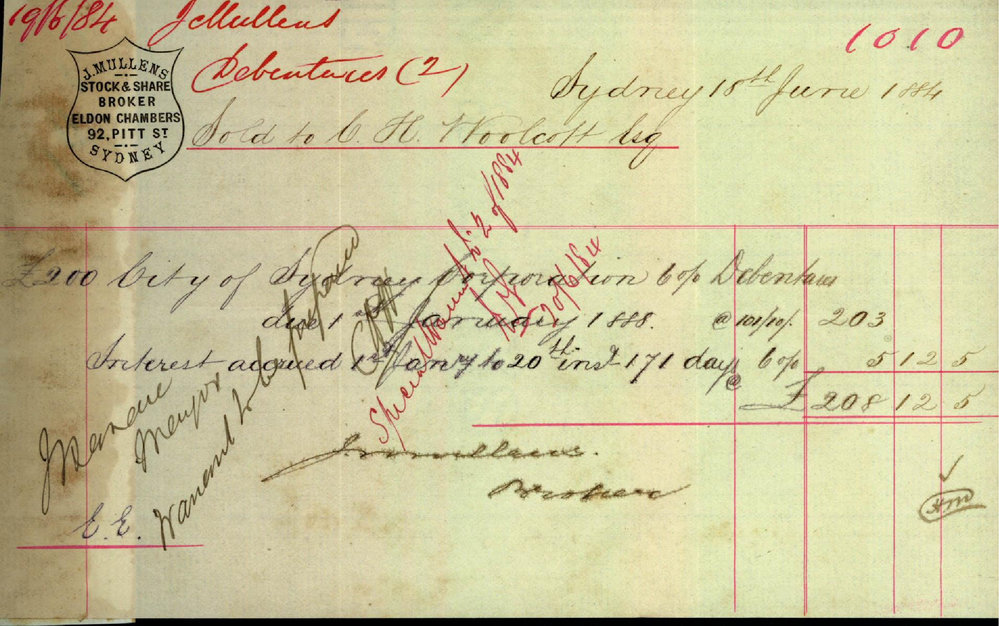 19/6/84 J Mullens
Debentures (2)
1010
J. MULLENS
STOCK & SHARE
BROKER
ELDON CHAMBERS
92, PITT ST
SYDNEY
Sydney 18th June 1884
Sold to C. H. Woolcott Esq
£200 City of Sydney Corporation 6 o/o Debentures
due 1st January 1888. @ 101/10/. 203
Interest accrued 1st Jany to 20th inst 171 days @ 6 o/o 5 12 5
£ 208 12 5
J. Mullens.
Broker
E. E.
Mayor
Warrant to be prepared
CHW
Special Warrant No 2 of 1884
20/6/84
HM